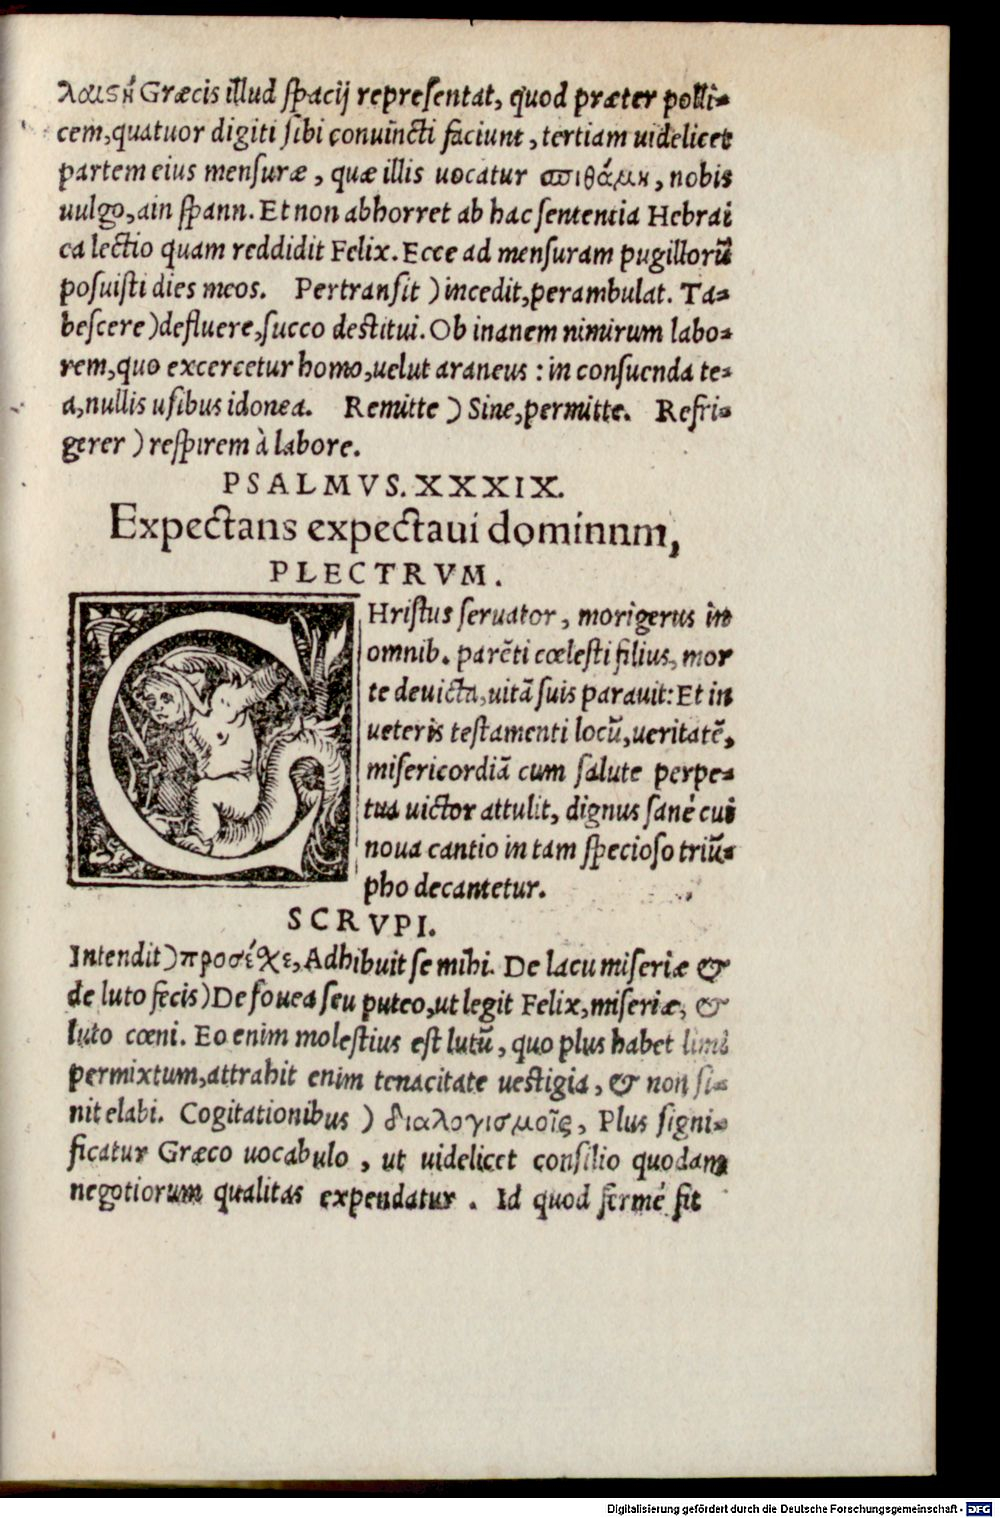 λαιϛὴ Græcis illud spacij representat, quod præter polli-
cem, quatuor digiti sibi conuincti faciunt, tertiam uidelicet
partem eius mensuræ, quæ illis uocatur σπιθάμη, nobis
uulgo, ain spann. Et non abhorret ab hac sententia Hebrai
ca lectio quam reddidit Felix. Ecce ad mensuram pugillorũ
posuisti dies meos. Pertransit) incedit, perambulat. Ta-
bescere) defluere, succo destitui. Ob inanem nimirum labo-
rem, quo excercetur homo, uelut araneus: in consuenda te-
a, nullis usibus idonea. Remitte) Sine, permitte. Refri-
gerer) respirem à labore.
PSALMVS. XXXIX.
Expectans expectaui dominnm,
PLECTRVM.
CHristus seruator, morigerus in
omnib. parẽti cœlesti filius, mor
te deuicta, uitã suis parauit: Et in
ueteris testamenti locũ, ueritatẽ,
misericordiã cum salute perpe-
tua uictor attulit, dignus sanè cui
noua cantio in tam specioso triũ-
pho decantetur.
SCRVPI.
Intendit) προσέχε, Adhibuit se mihi. De lacu miseriæ &
de luto fecis) De fouea seu puteo, ut legit Felix, miseriæ, &
luto cœni. Eo enim molestius est lutũ, quo plus habet limi
permixtum, attrahit enim tenacitate uestigia, & non si-
nit elabi. Cogitationibus) διαλογισμοῖς, Plus signi-
ficatur Græco uocabulo, ut uidelicet consilio quodam
negotiorum qualitas expendatur. Id quod fermè fit
Digitalisierung gefördert durch die Deutsche Forschungsgemeinschaft - DFG